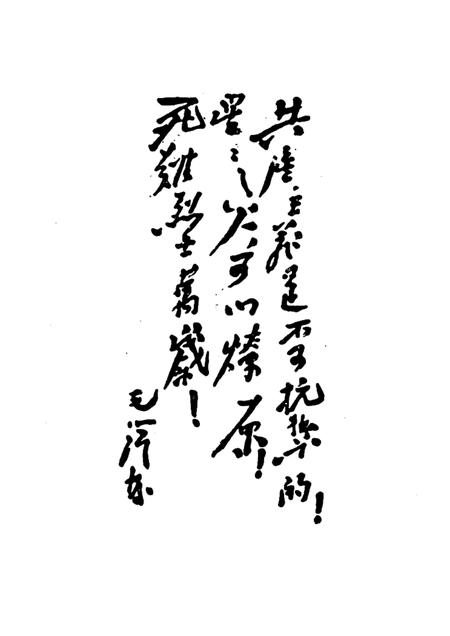 共產主義是不可抗禦的！
星〻之火可以燎原！
死難烈士萬歲！
毛泽东